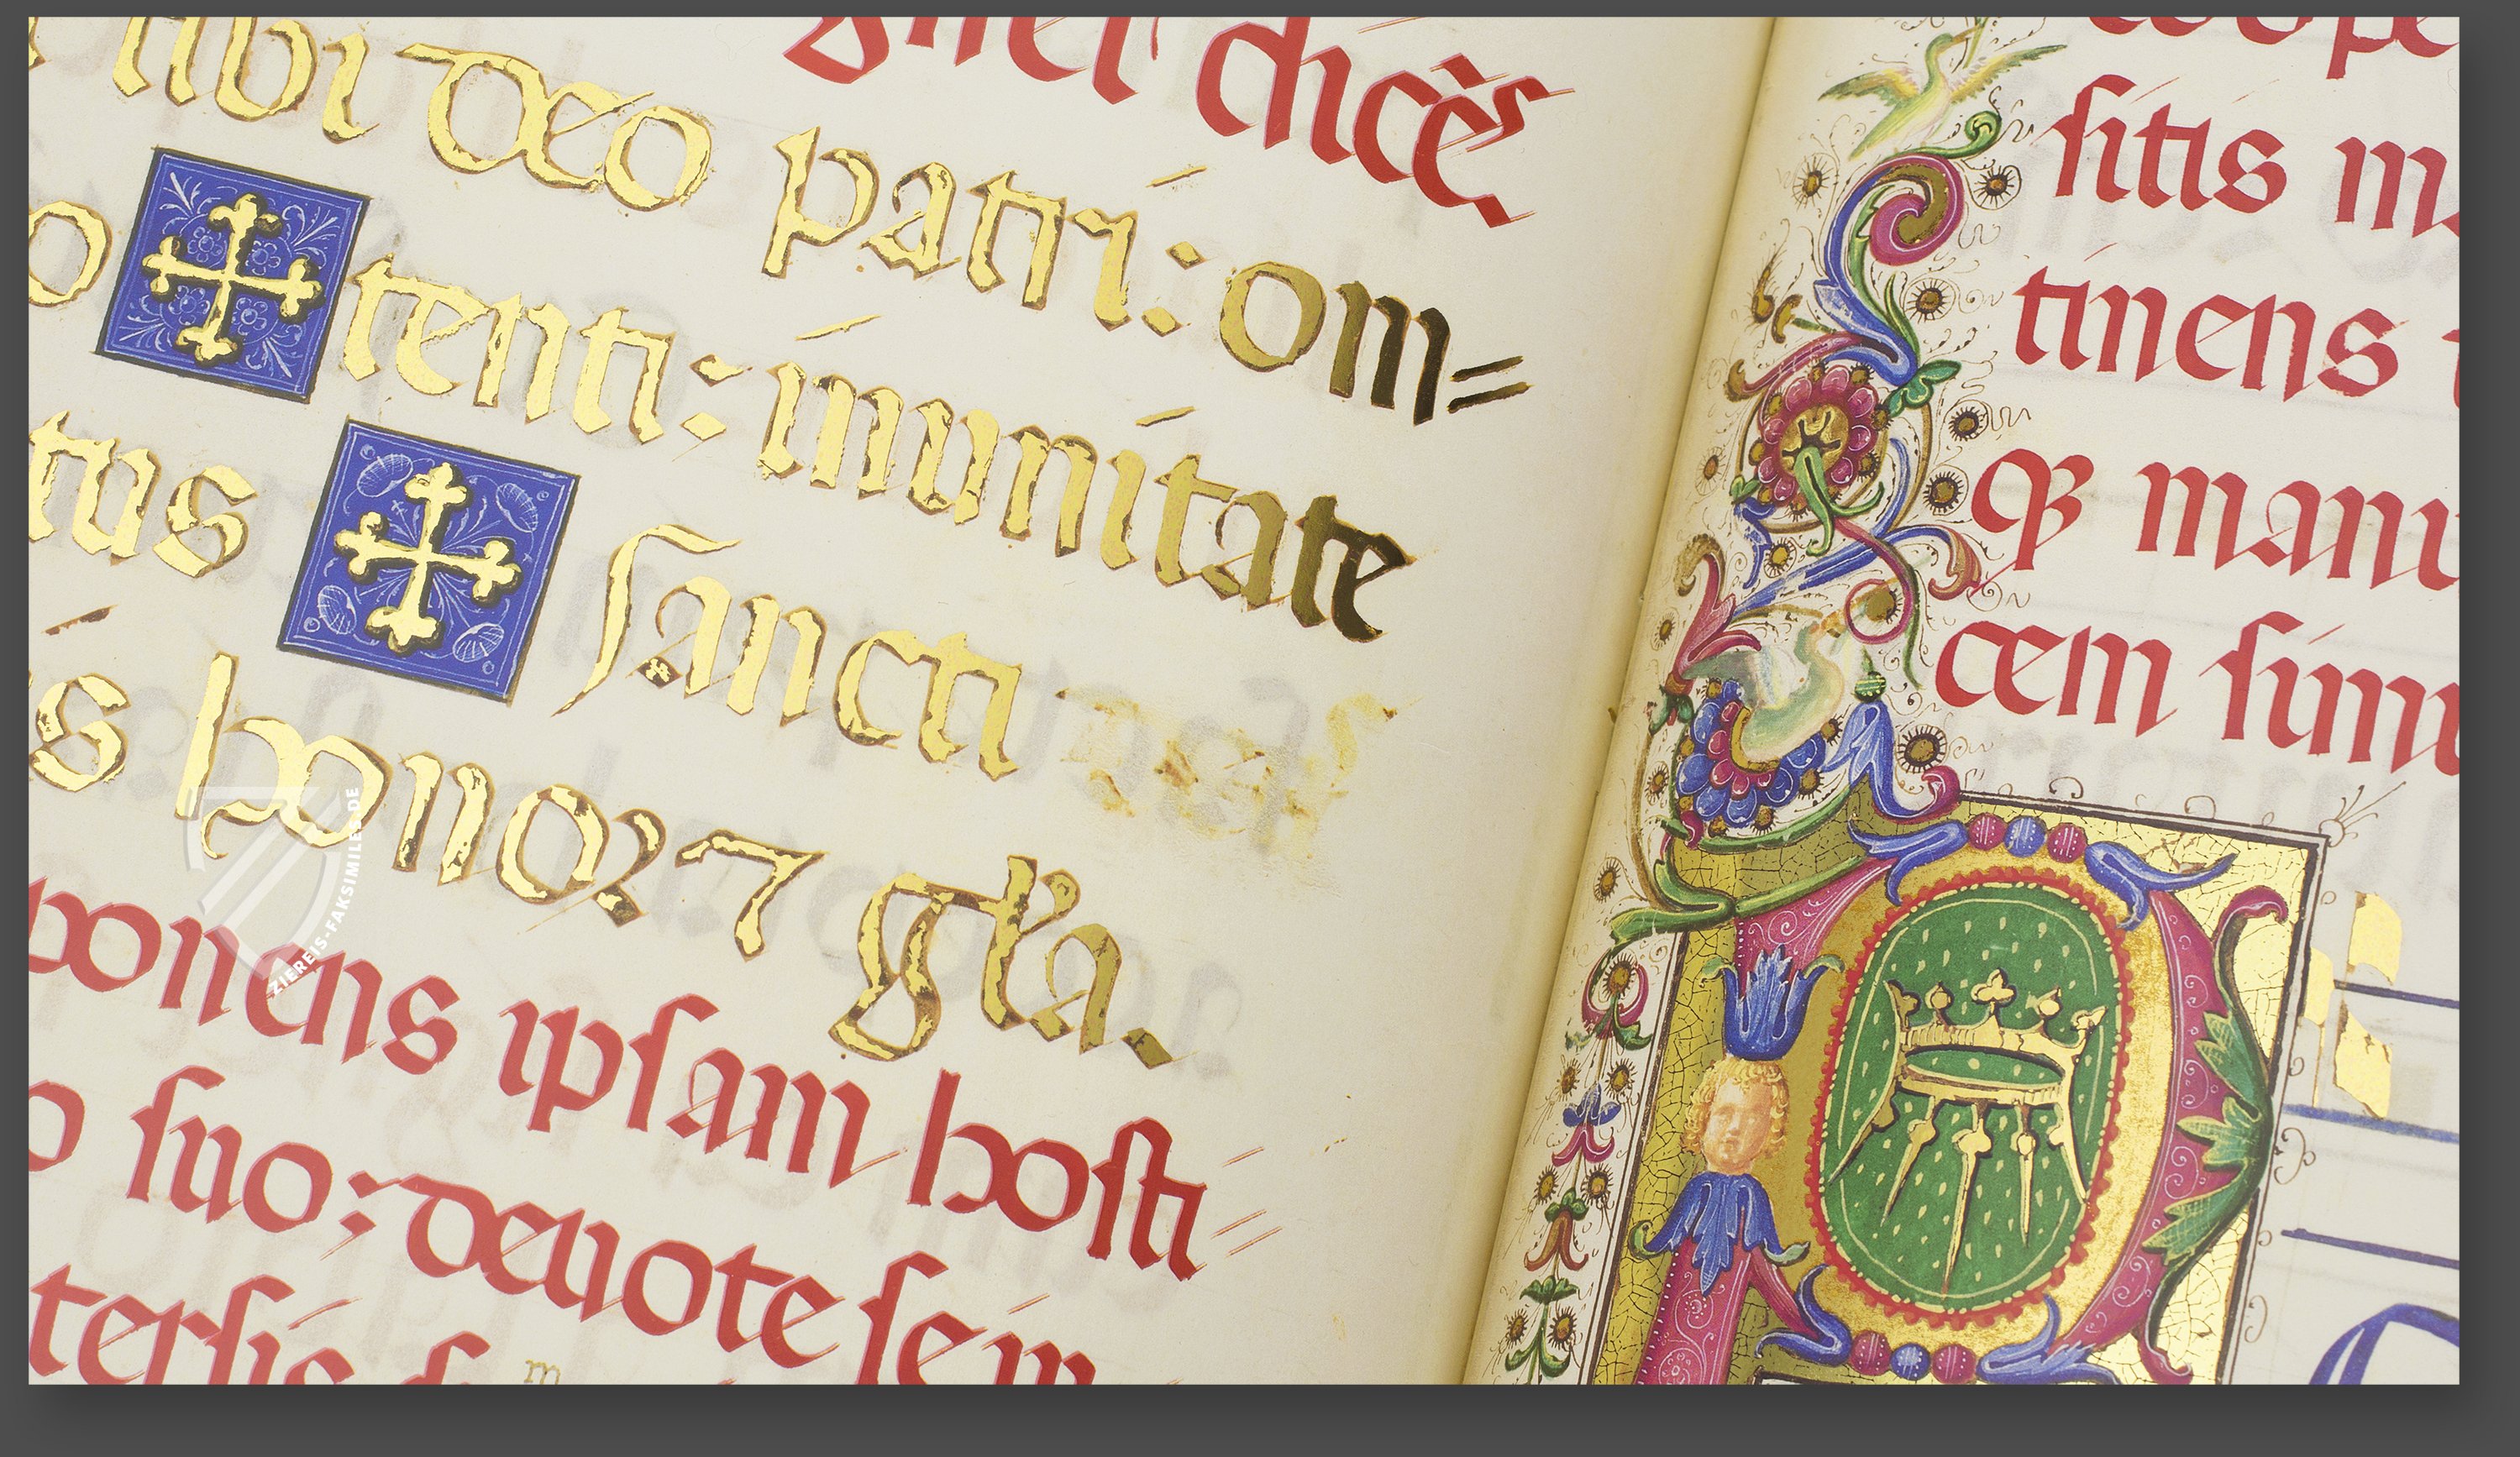 dicẽs
tibi deo patri: om=
o ✠ tenti: in unitate
tus ✠ sancti
s honor ⁊ gl'a.
ponens ipsam hosti
o suo; deuote sem
m
sitis m
tinens
manu
cem simu
ZIEREIS-FAKSIMILE.DE